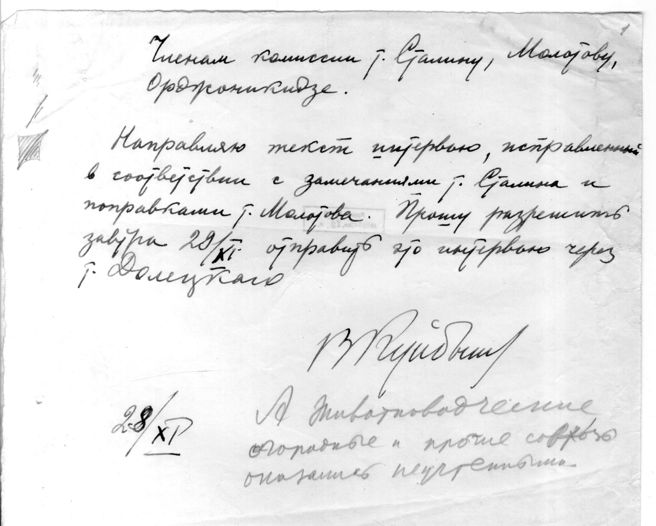 1
Членам комиссии т. Сталину, Молотову,
Орджоникидзе.
Направляю текст интервью, исправленный
в соответствии с замечаниями т. Сталина и
поправками т. Молотова. Прошу разрешить
завтра 29/XI отправить это интервью через
т. Долецкого
В Куйбышев
28/XI
А животноводческие
огородные и прочие совхозы
оказались неучтенными.